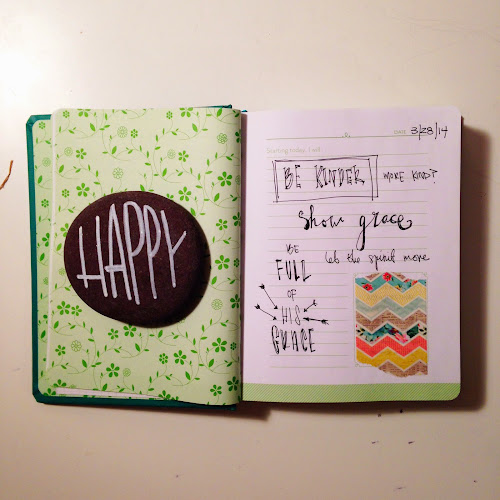 HAPPY
DATE 3/28/14
Starting today, I will
BE KINDER MORE KIND?
Show grace
let the spirit move
BE
FULL
OF
HIS
GRACE